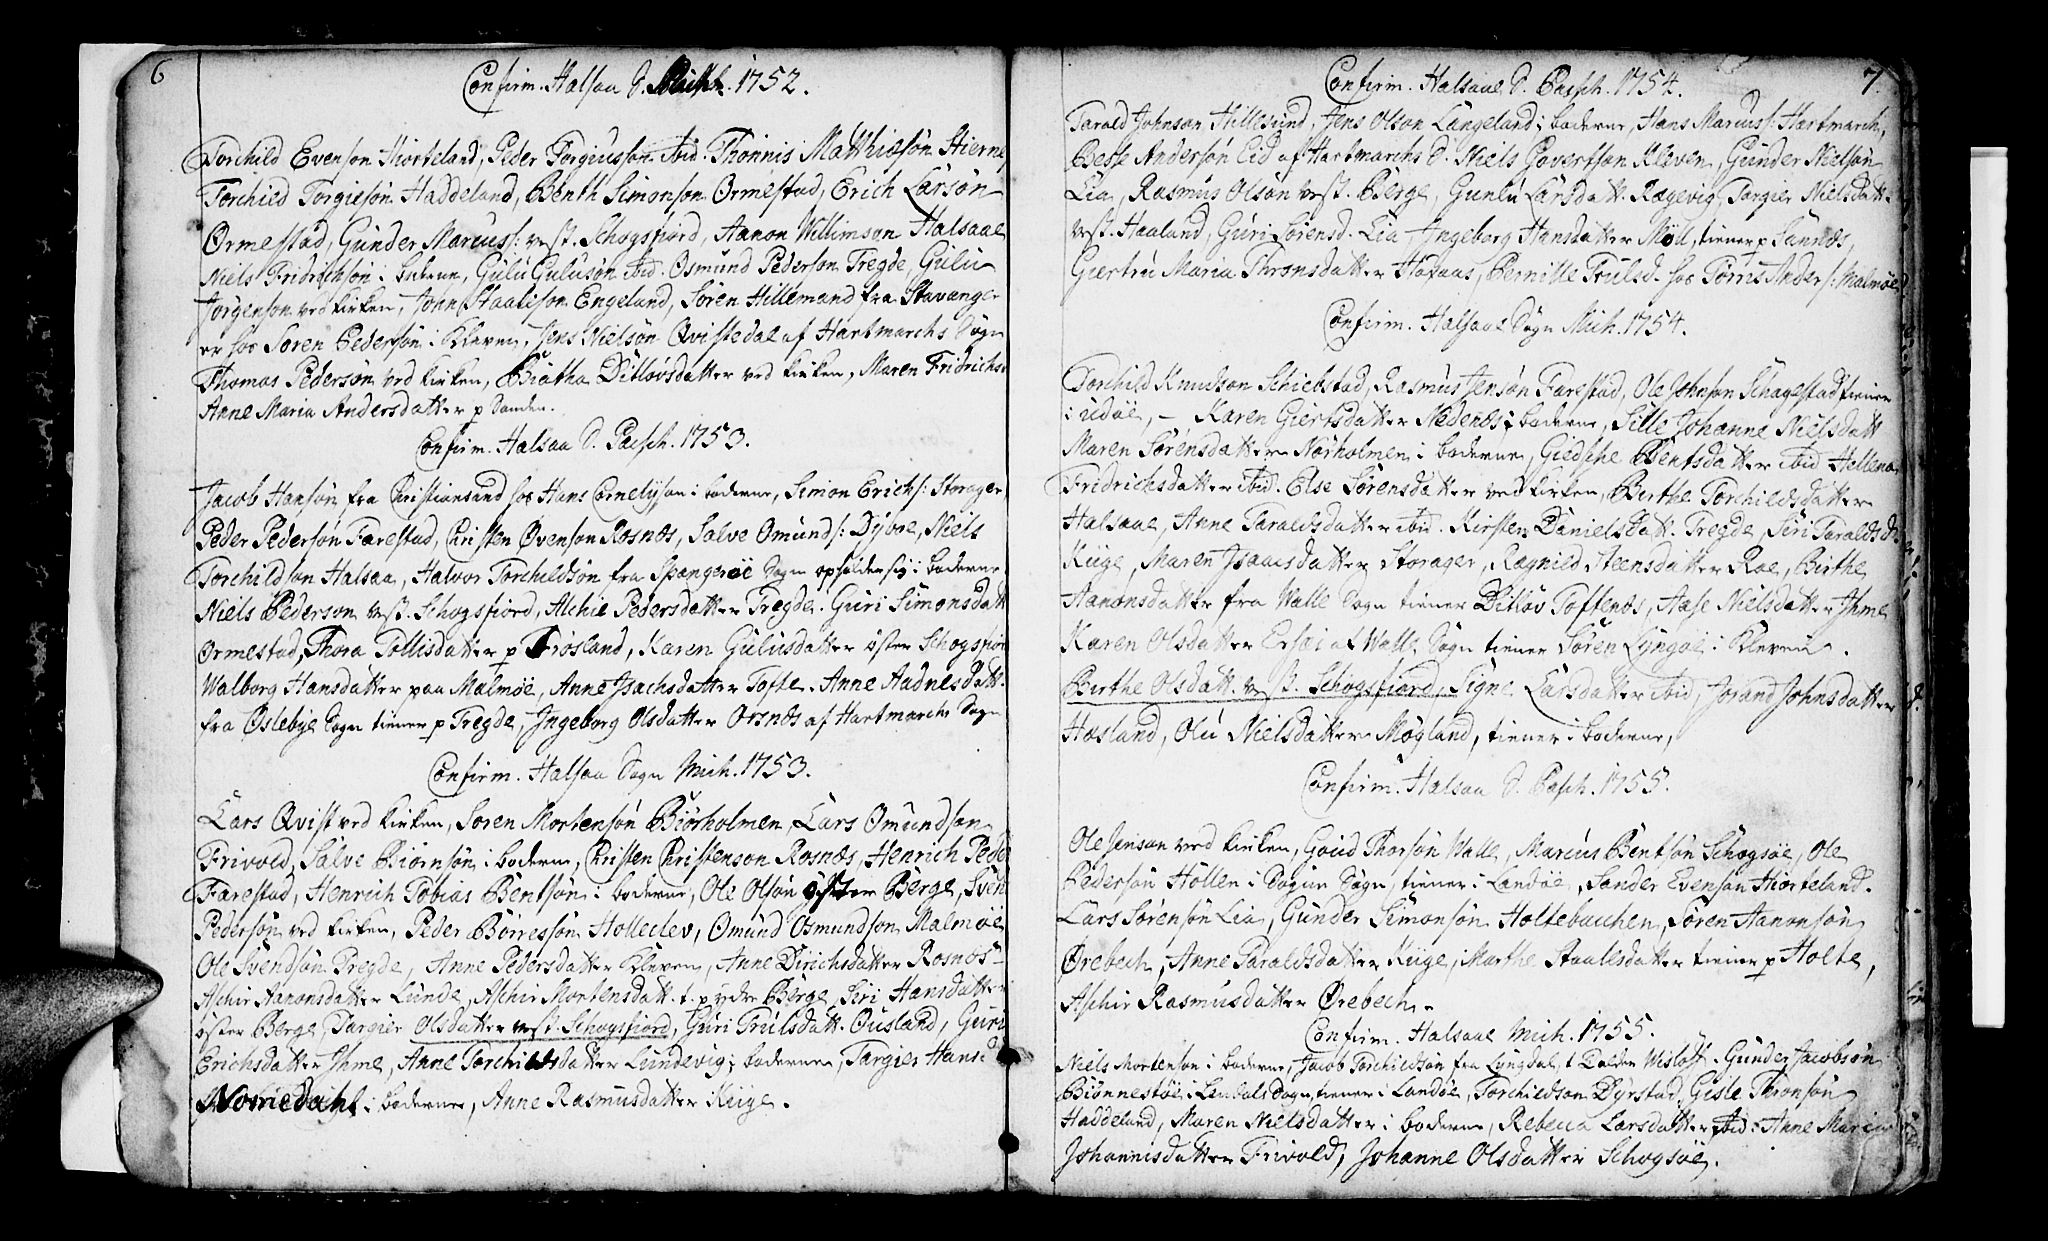 6
Confirm. Halsaa S. Mich. 1752.
Torchild Evenson Hiorteland, Peder Torgiusson ibid. Thønnis Matthiæsøn Hierne
Torchild Torgiesøn Haddeland, Benth Simonson Ormestad, Erich Larsøn
Ormestad, Gunder Marcuss: vest. Schogsfiord, Aanon Willimson Halsaae
Niels Fridrichsøn i , Gulu Gulusøn ibid. Osmund Pederson Tregde, Gulu
Jørgenson ved Kirken, John Staalison Engeland, Søren Hillemand fra Stavanger
er hos Soren Pedersøn i Kleven, Jens Nielsøn Qvistedal af Hartmarchs Sogn
Thomas Pedersøn ved Kirken, Biatha Ditløvsdatter ved Kirken, Maren Fridrichs
Anne Maria Andersdatter p Sanden.
Confirm. Halsaa S. Pasch. 1753.
Jacob Hansøn fra Christiansand hos Hans Cornelijson i boderne, Simon Erichs: Storager
Peder Pedersøn Farestad, Christen Øvenson Rosnæs, Salve Omunds: Dybøe, Niels
Torchildson Halsaa, Halvor Torchildsøn fra Spangerøe Sogn opholder sig i boderne
Niels Pederson vest. Schogsfiord, Aschie Pedersdatter Tregde. Guri Simonsdatt
Ormestad, Thora Tollisdatter p Frøsland, Karen Gulusdatter østen Schogsfior
Walborg Hansdatter paa Malmøe, Anne Isachsdatter Tofte. Anne Aadnesdatt.
fra Øslebye Sogn tiener p Tregde, Ingeborg Olsdatter Orsnæs af Hartmarchs Sogn
Confirm. Halsaa Sogn Mich. 1753.
Lars Qvist ved Kirken, Soren Mortensøn Biørholmen, Lars Omundson
Frivold, Salve Biørnsøn i boderne, Christen Christenson Rosnæs, Henrich Pede
Farestad, Henrich Tobias Bentsøn i boderne, Ole Olsøn øster Berge, Sven
Pedersøn ved Kirken, Peder Børresson Holleclev, Omund Osmundson Malmøe
Ole Svendsøn Tregde, Anne Pedersdatter Kleven, Anne Dirichsdatter Rosnæs
Aschie Aanonsdatter Lunde, Aschir Mortensdatt. t. p ydre Berge, Siri Hansdatter
øster Berge, Targier Olsdatter vest. Schogsfiord, Guri Trulsdatt. Ousland, Guri
Erichsdatter Ihme, Anne Torchildsdatter Lundevig i boderne, Targier Hansd
i boderne, Anne Rasmusdatter Kiige.
7.
Confirm. Halsaae S. Pasch. 1754.
Tarald Johnson Hillesund, Jens Olson Langeland i boderne, Hans Marcuss: Hartmarch,
Besse Andersøn Eid af Hartmarchs S. Niels Govertson Kleven, Gunder Nielsøn
Lia, Rasmus Olsøn vest. Berge, Gunlu Larsdatt. Rægevig, Targier Nielsdatt.
vest. Haaland, Guri Sørensd. Lia, Ingeborg Hansdatter Møll, tiener p Sannes,
Giertru Maria Thronsdatter Høyaas, Pernille Trulsd. hos Torris Anders: Malmøe
Confirm. Halsaae Sogn Mich. 1754.
Torchild Knudson Schiebstad, Rasmus Jensøn Farestad, Ole Johnson Schagestad tiener
i udøe, – Karen Giertsdatter Nedenæs i boderne, Sille Johanne Nielsdatt
Maren Sørensdatter Nørholmen i boderne, Giedsche Bentsdatter ibid. Hellena
Fridrichsdatter ibid. Else Sørensdatter ved Kirken, Berthe Torchildsdatter
Halsaae, Anne Taraldsdatter ibid. Kirsten Danielsdatt. Tregde, Siri Taraldsd
Kiige, Maren Isaacsdatter Storager, Rægnild Steensdatter Roe, Birthe
Aanonsdatter fra Walle Sogn tiener Ditløv Toftenæs, Aase Nielsdatter Ihme
Karen Olsdatter af Walle Sogn tiener Søren Lyngøe i Kleven.
Birthe Olsdatt. vest. Schogsfiord, Signe Larsdatter ibid, Jorand Johnsdatter
Hæsland, Olu Nielsdatter Møgland, tiener i boderne,
Confirm. Halsaa S. Pasch. 1755.
Ole Jenson ved Kirken, Goud Thorsøn Walle, Marcus Bentsøn Schogsøe, Ole
Pedersøn Hollen i Sogne Sogn, tiener i Landøe, Sander Evenson Hiorteland.
Lars Sørensøn Lia, Gunder Simonsøn Holtebacchen, Søren Aanonsøn
Ørebech, Anne Taraldsdatter Kiige, Marthe Staalesdatter tiener p Holte,
Aschir Rasmusdatter Ørebech.
Confirm. Halsaae Mich. 1755.
Niels Mortenson i boderne, Jacob Torchildsøn fra Lyngdal, t. Gunder Jacobsøn
Biønnestøe i Lendals Sogn, tiener i Landøe, Torchildson Dyrstad, Gisle Thronsøn
Haddeland, Maren Nielsdatter i boderne, Rebecca Larsdatter ibid: Anne Maria
Johannisdatter Frivold, Johanne Olsdatter Schogsøe.